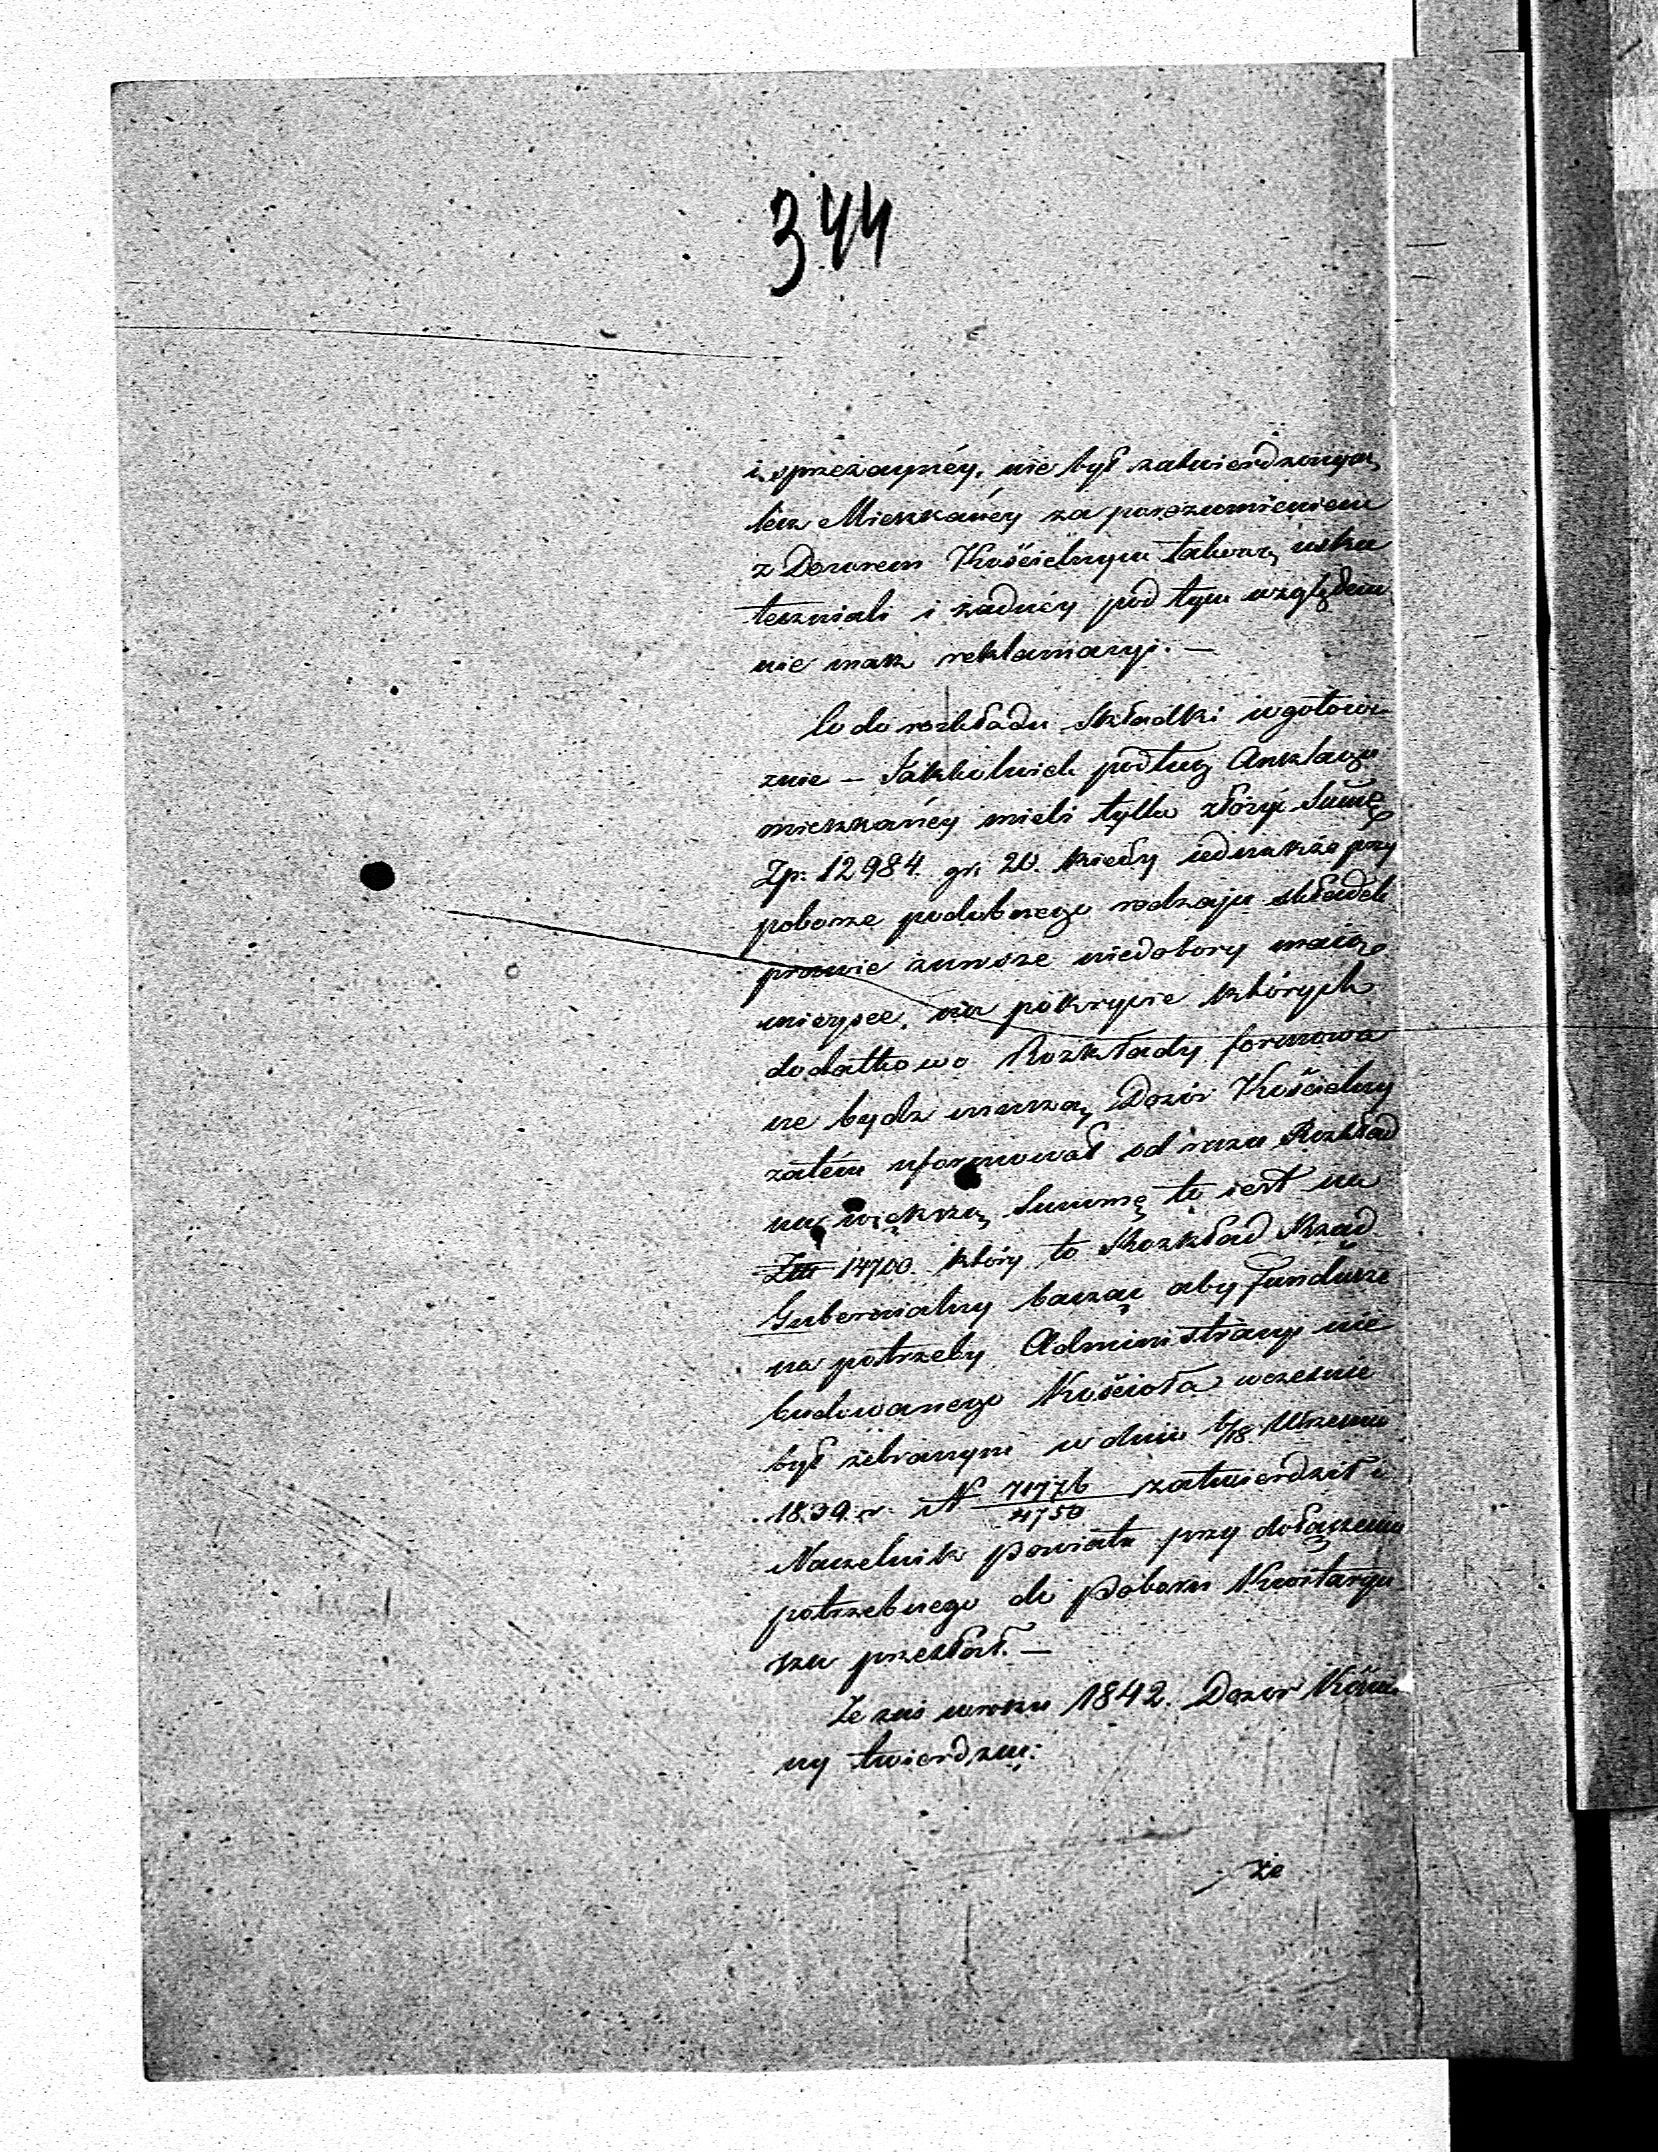 344
i sprzężayney, nie był zatwierdzonym,
lecz Mieszkańcy za porozumieniem
z Dozorem Kościelnym takową usku
teczniali i żadnéy pod tym względem
nie masz reklamacyi. —
Co do rozkładu składki w gotowi-
znie — podług Anszlagu
mieszkańcy mieli tylko złożyć Summę
Zp. 12984. gr. 20. kiedy iednakże przy
poborze podobnego rodzaju składek
prawie zawsze niedobory maią
mieysce, na pokrycie których
dodatkowo Rozkłady formowa
ne bydź muszą, Dozór Kościelny
zatém uformował od razu Rozkład
na większą Summę to iest na
Złп 14700. który to Rozkład Rząd
Gubernialny bacząc aby fundusze
na potrzeby Administracyi nie
budowanego Kościoła wcześnie
był zebranym w dniu 6/18 Wrześnu
1839. r. N 71776/4750 zatwierdził i
Naczelnik Powiatu przy dołączeniu
potrzebnego do Poboru Kwitaryu
sza przesłał. —
Że zaś w roku 1842. Dozór Kościel
ny twierdzę:
że